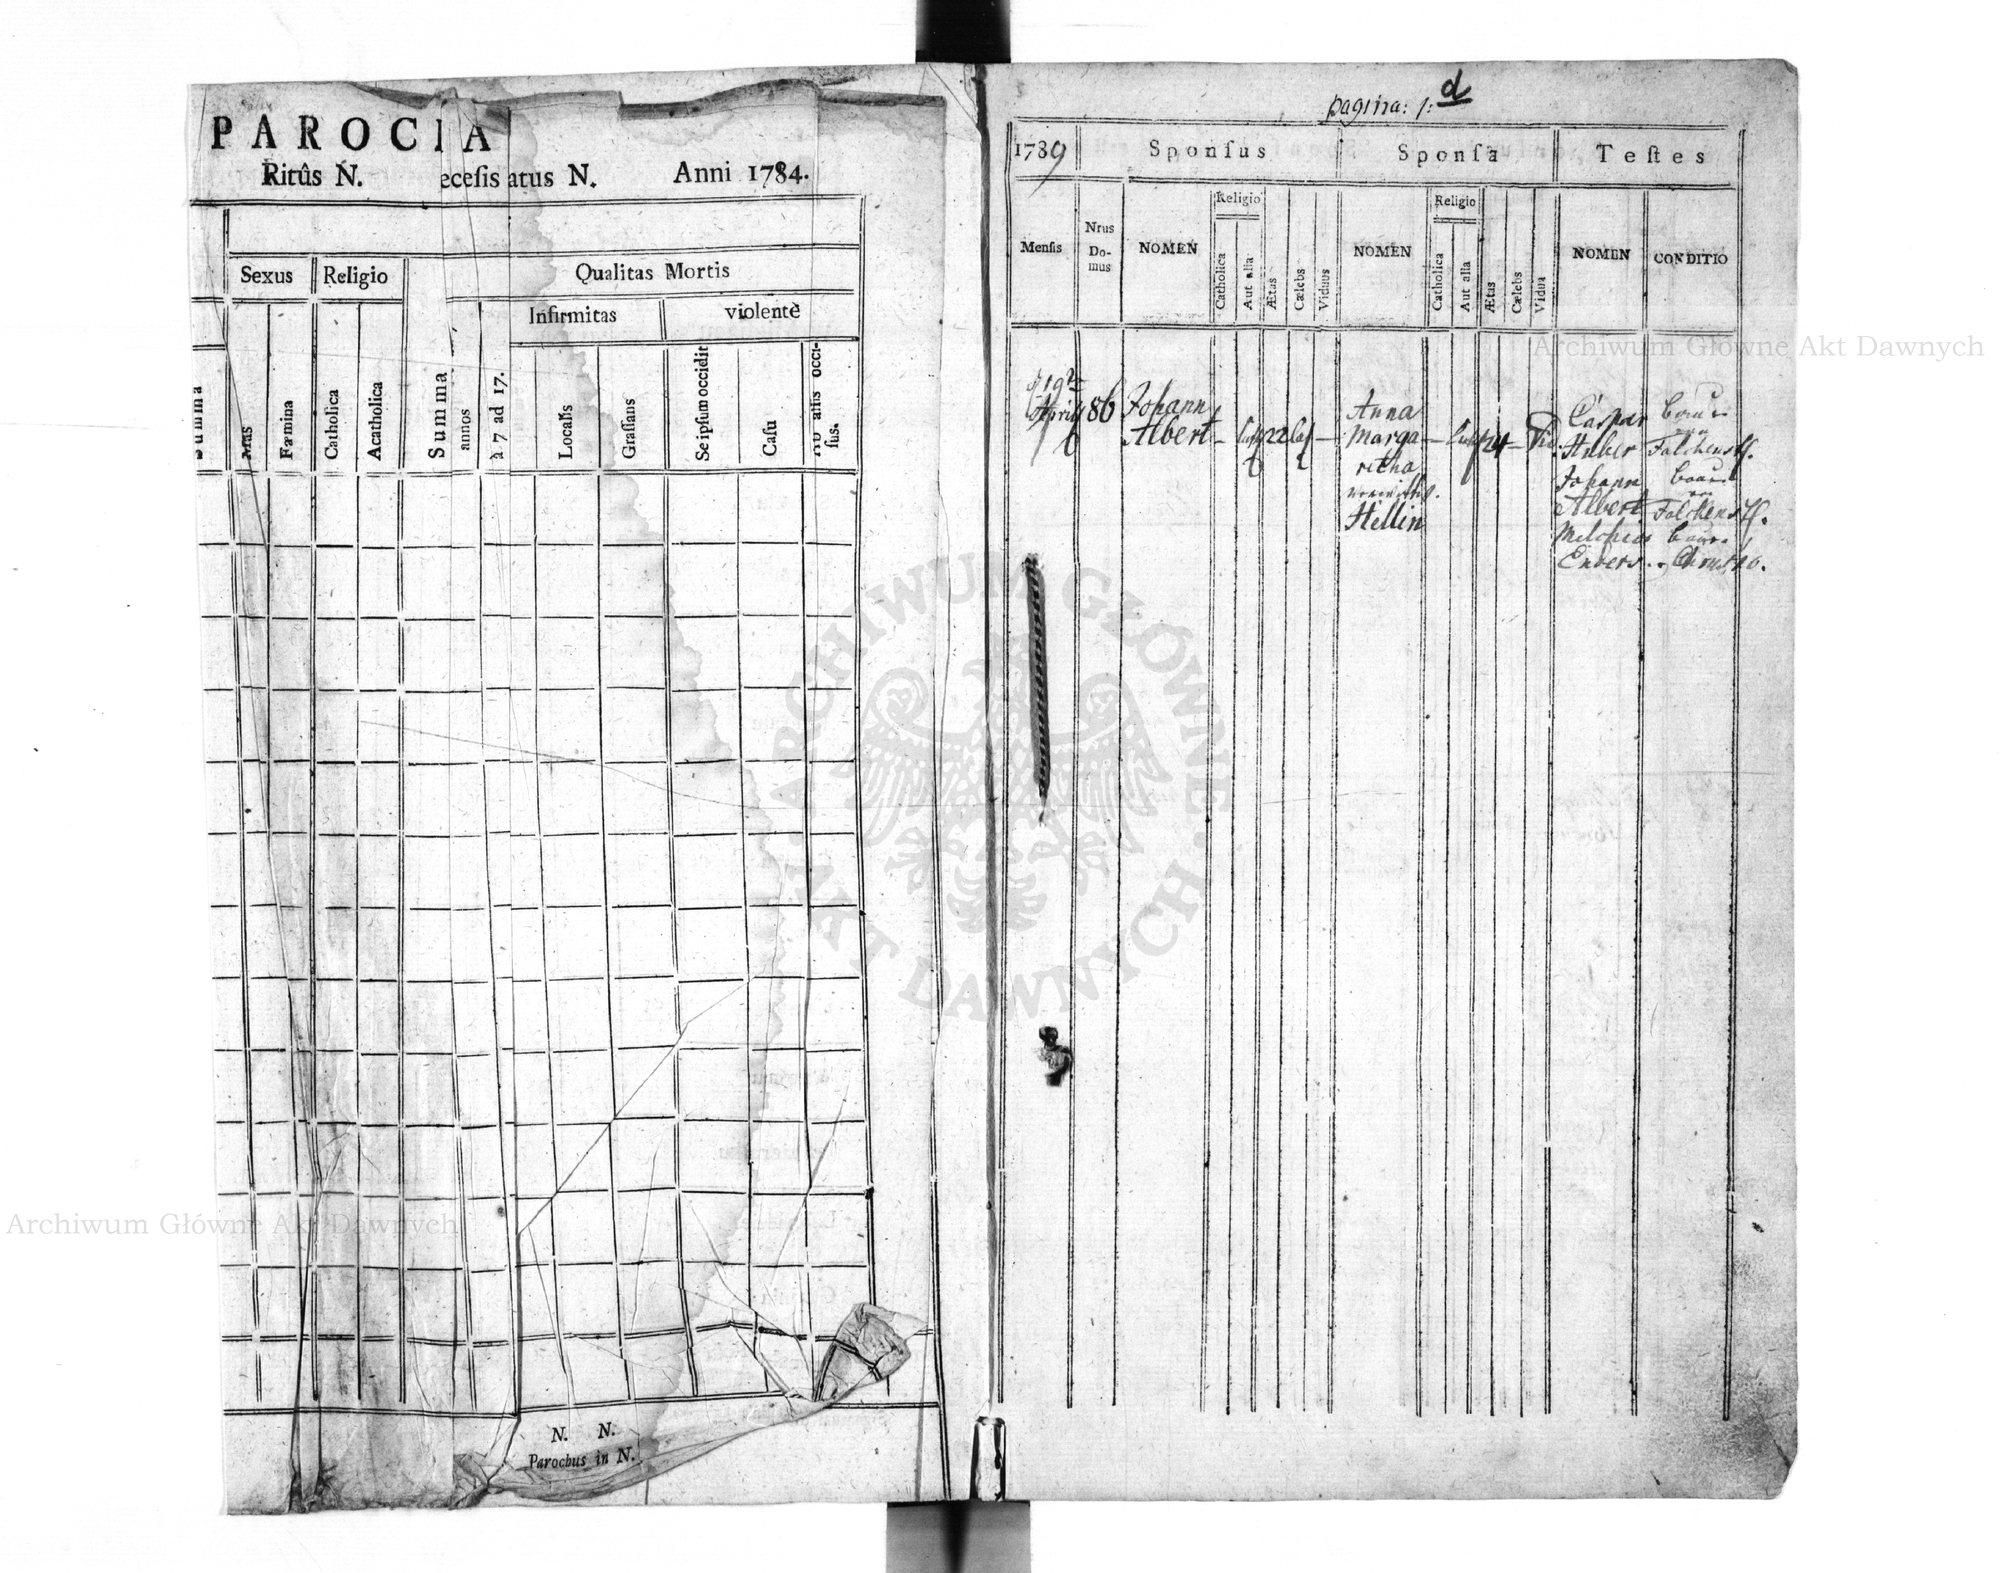 PAROCIA
Ritûs N. ecesis atus N. Anni 1784.
Sexus Religio Qualitas Mortis
Infirmitas violente
Summa
Mas
Fœmina
Catholica
Acatholica
Summa
annos
à 7 ad 17.
Localis
Grassans
Seipsum occidit
Casu
Ab aliis occi-
sus.
N. N.
Parochus in N.
pagina: 1: d
1789 Sponſus Sponſa Teſtes
Menſis
Nrus
Do-
mus
NOMEN
Religio
Catholica
Aut alia
Ætas
Cælebs
Viduus
NOMEN
Religio
Catholica
Aut alia
Ætas
Cælebs
Vidua
NOMEN
CONDITIO
April 86
Johann
Albert
22
Anna
Marga
retha
Hellin
24
Caspar
Huber
Johann
Albert
Baur
Falckenst.
Falckenst.
Archiwum Główne Akt Dawnych
Archiwum Główne Akt Dawnych
ARCHIWUM GŁÓWNE · AKT DAWNYCH ·